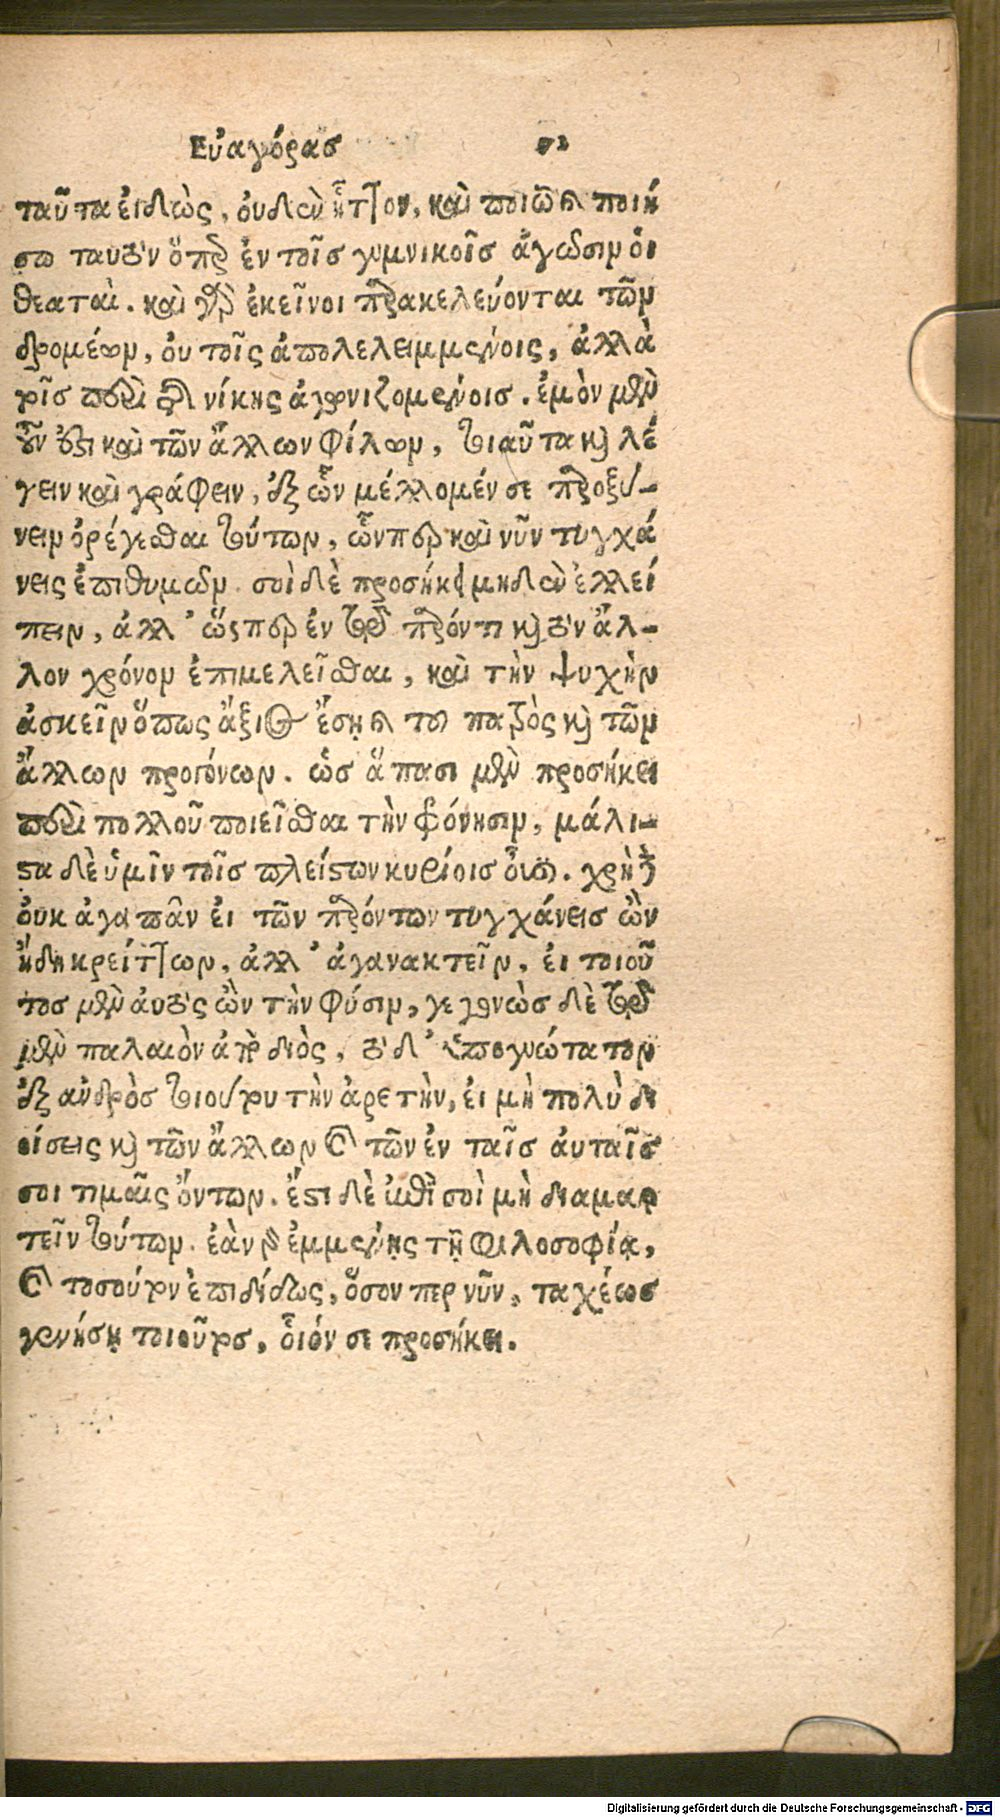 Εὐαγόρας 92
ταῦτα εἰδὼς, οὐδὲν ἧττον, καὶ ποιῶ καὶ ποιή
σω ταυτὸν ὅπερ ἐν τοῖς γυμνικοῖς ἀγῶσιν οἱ
θεαταὶ. καὶ γὰρ ἐκεῖνοι παρακελεύονται τῶν
δρομέων, οὐ τοῖς ἀπολελειμμένοις, ἀλλὰ
τοῖς περὶ τῆς νίκης ἀγωνιζομένοις. ἐμὸν μὲν
οὖν ἐστι καὶ τῶν ἄλλων φίλων, τοιαῦτα καὶ λέ
γειν καὶ γράφειν, ἐξ ὧν μέλλομέν σε παροξύ-
νειν ὀρέγεσθαι τούτων, ὧνπερ καὶ νῦν τυγχά
νεις ἐπιθυμῶν. σοὶ δὲ προσήκει μηδὲν ἐλλεί
πειν, ἀλλ' ὥσπερ ἐν τῷ παρόντι καὶ τὸν ἄλ-
λον χρόνον ἐπιμελεῖσθαι, καὶ τὴν ψυχὴν
ἀσκεῖν ὅπως ἄξιος ἔσῃ καὶ τοῦ πατρὸς καὶ τῶν
ἄλλων προγόνων. ὡς ἅπασι μὲν προσήκει
περὶ πολλοῦ ποιεῖσθαι τὴν φρόνησιν, μάλι-
στα δὲ ὑμῖν τοῖς πλείστων κυρίοις οὖσι. χρὴ δὲ
οὐκ ἀγαπᾶν εἰ τῶν παρόντων τυγχάνεις ὢν
ἤδη κρείττων, ἀλλ' ἀγανακτεῖν, εἰ τοιοῦ
τος μὲν αὐτὸς ὢν τὴν φύσιν, γεγονὼς δὲ τὸ
μὲν παλαιὸν ἀπὸ διὸς, τὸ δ' ὑπογυώτατον
ἐξ ἀνδρὸς τοιούτου τὴν ἀρετὴν, εἰ μὴ πολὺ δι
οίσεις καὶ τῶν ἄλλων καὶ τῶν ἐν ταῖς αὐταῖς
σοι τιμαῖς ὄντων. ἔστι δὲ ἐπὶ σοὶ μὴ διαμαρ
τεῖν τούτων. ἐὰν γὰρ ἐμμένῃς τῇ φιλοσοφίᾳ,
καὶ τοσοῦτον ἐπιδίδως, ὅσον περ νῦν, ταχέως
γενήσῃ τοιοῦτος, οἷόν σε προσήκει.
Digitalisierung gefördert durch die Deutsche Forschungsgemeinschaft - DFG